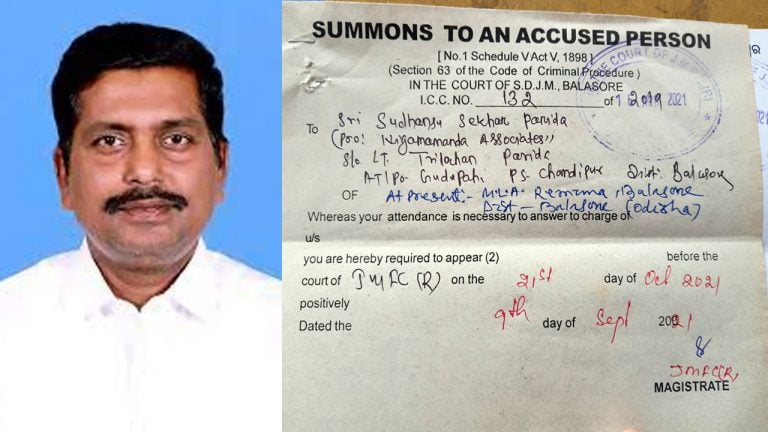 SUMMONS TO AN ACCUSED PERSON
[ No.1 Schedule V Act V, 1898 ]
(Section 63 of the Code of Criminal Procedure )
IN THE COURT OF S.D.J.M., BALASORE
I.C.C. NO. 132 of 2019
THE COURT OF J.M.F.C (R)
2021
To Sri Sudhansu Sekhar Parida
(Pro: Nigamananda Associates"
S/o. LT. Trilochan Parida
AT/Po- Gudupahi PS- Chandipur Dist. Balasore
OF At Present:- M.L.A. Remuna, Balasore
Dist - Balasore (Odisha)
Whereas your attendance is necessary to answer to charge of
u/s
you are hereby required to appear (2) before the
court of JMFC (R) on the 21st day of Oct 2021
positively
Dated the 9th day of Sept 2021
JMFC(R),
MAGISTRATE